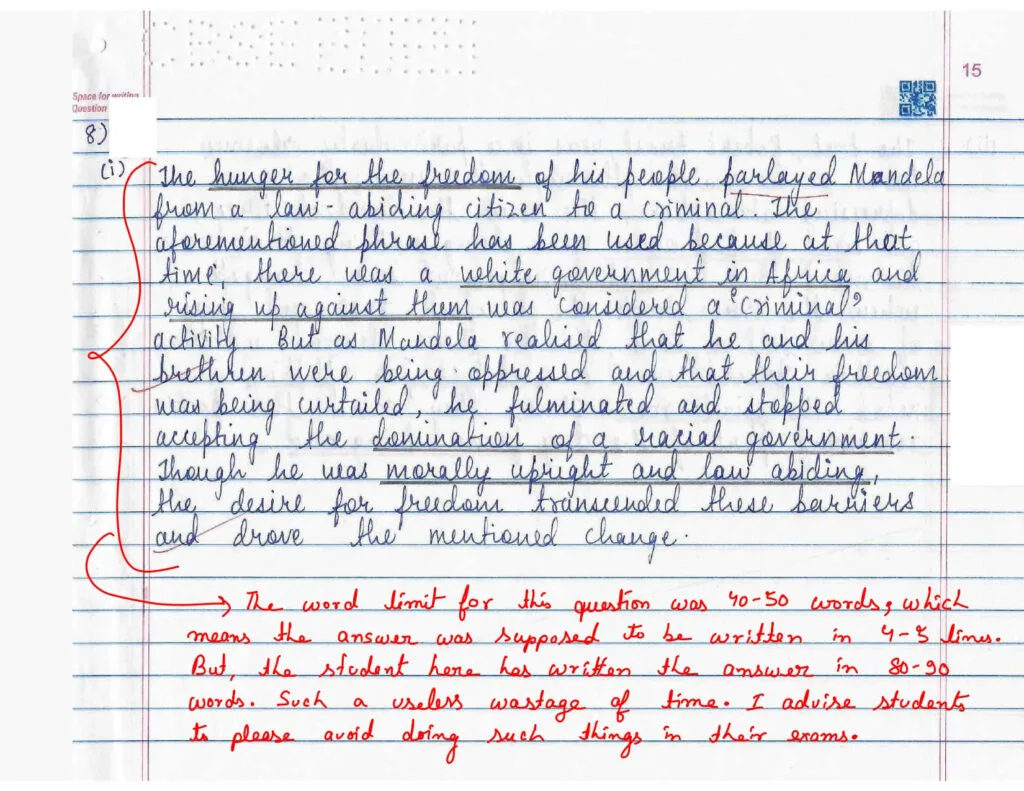 CBSE
15
Space for writing
Question
8)
(i) The hunger for the freedom of his people parlayed Mandela
from a law-abiding citizen to a criminal. The
aforementioned phrase has been used because at that
time, there was a white government in Africa and
rising up against them was considered a "criminal"
activity. But as Mandela realised that he and his
brethren were being oppressed and that their freedom
was being curtailed, he fulminated and stopped
accepting the domination of a racial government.
Though he was morally upright and law abiding,
the desire for freedom transcended these barriers
and drove the mentioned change.
The word limit for this question was 40-50 words, which
means the answer was supposed to be written in 4-5 lines.
But, the student here has written the answer in 80-90
words. Such a useless wastage of time. I advise students
to please avoid doing such things in their exams.